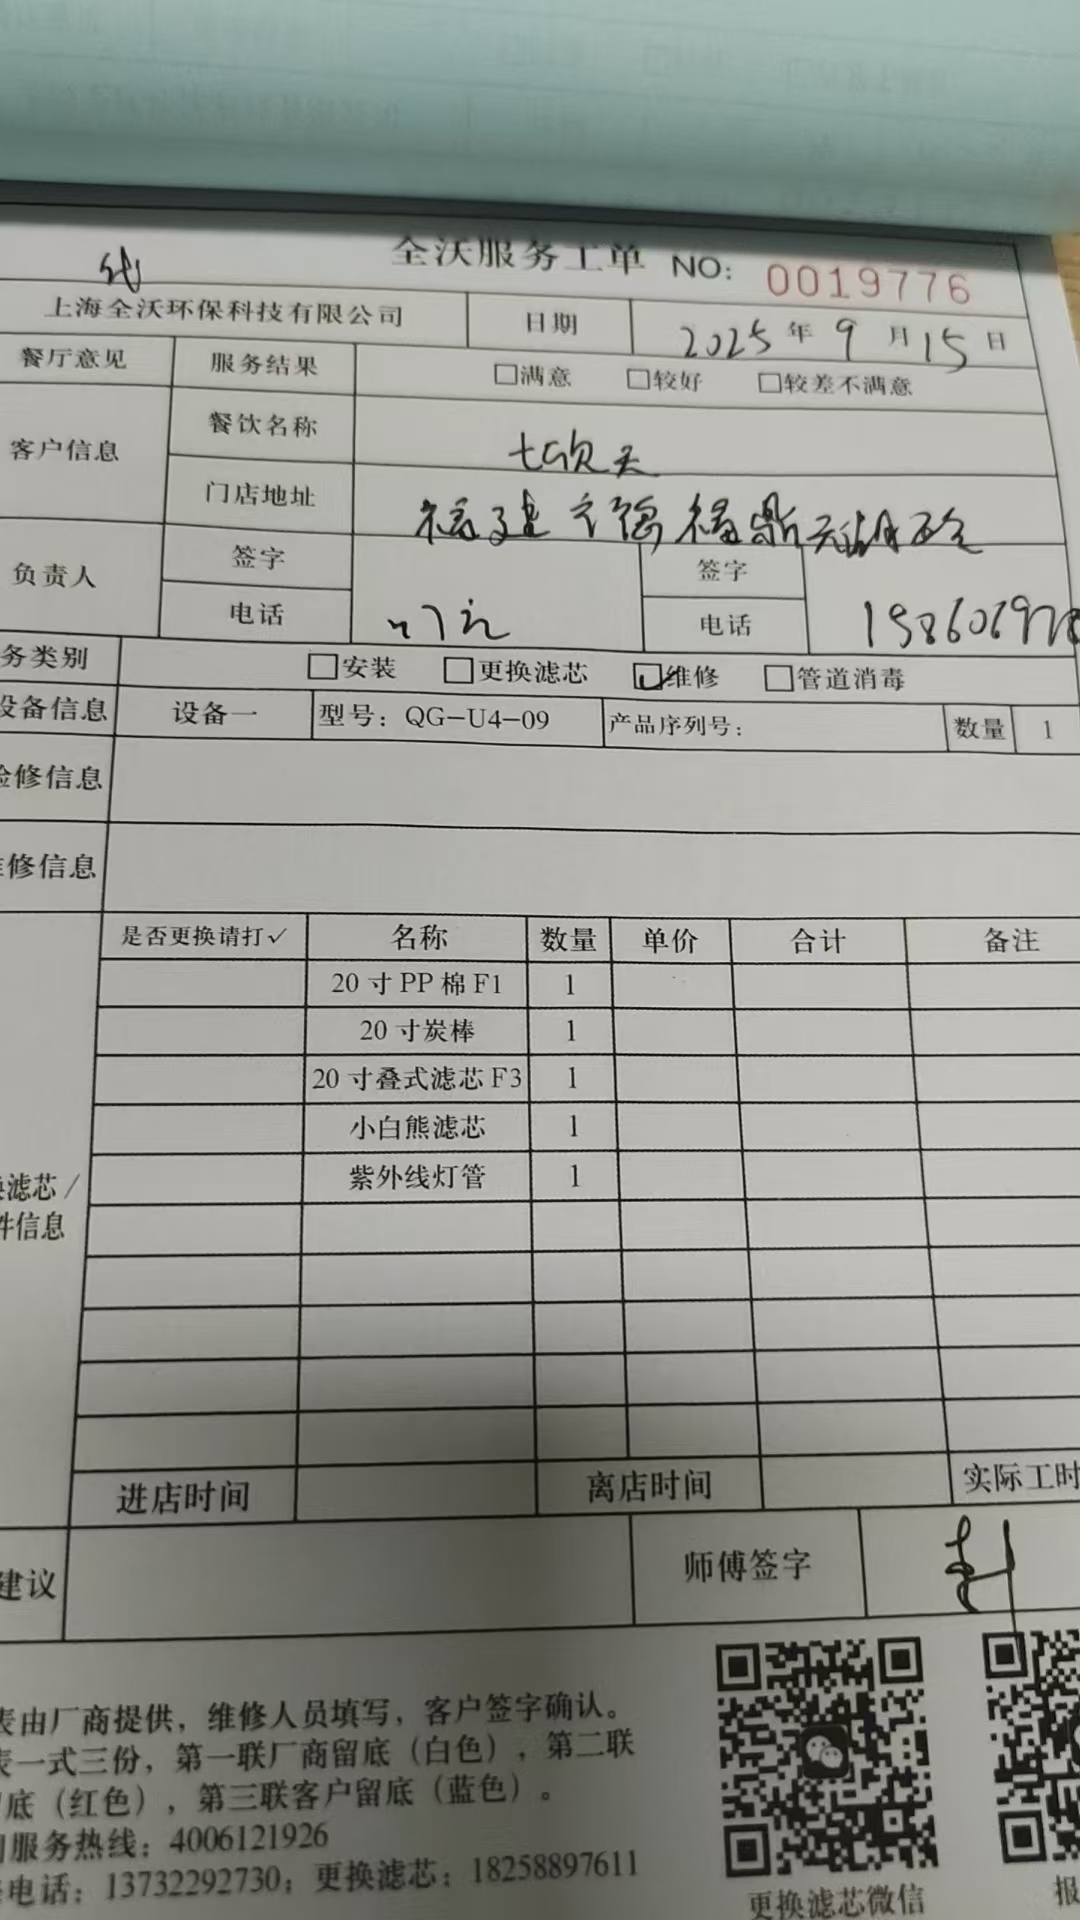 全沃服务工单 NO: 0019776
代
上海全沃环保科技有限公司 日期 2025年9月15日
餐厅意见 服务结果 □满意 □较好 □较差不满意
客户信息 餐饮名称 七欣天
门店地址 福建宁德福鼎天湖
负责人 签字 签字
电话 电话 158606978
务类别 □安装 □更换滤芯 ☑维修 □管道消毒
设备信息 设备一 型号: QG-U4-09 产品序列号: 数量 1
检修信息
维修信息
是否更换请打✓ 名称 数量 单价 合计 备注
20寸PP棉F1 1
20寸炭棒 1
20寸叠式滤芯F3 1
小白熊滤芯 1
紫外线灯管 1
换滤芯/
件信息
进店时间 离店时间 实际工时
建议 师傅签字
表由厂商提供，维修人员填写，客户签字确认。
表一式三份，第一联厂商留底（白色），第二联
留底（红色），第三联客户留底（蓝色）。
服务热线: 4006121926
电话: 13732292730; 更换滤芯: 18258897611
更换滤芯微信
报